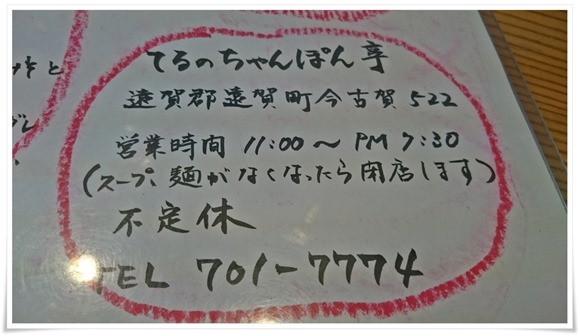 てるのちゃんぽん亭
遠賀郡遠賀町今古賀522
営業時間 11:00～PM7:30
(スープ、麺がなくなったら閉店します)
不定休
TEL 701-7774